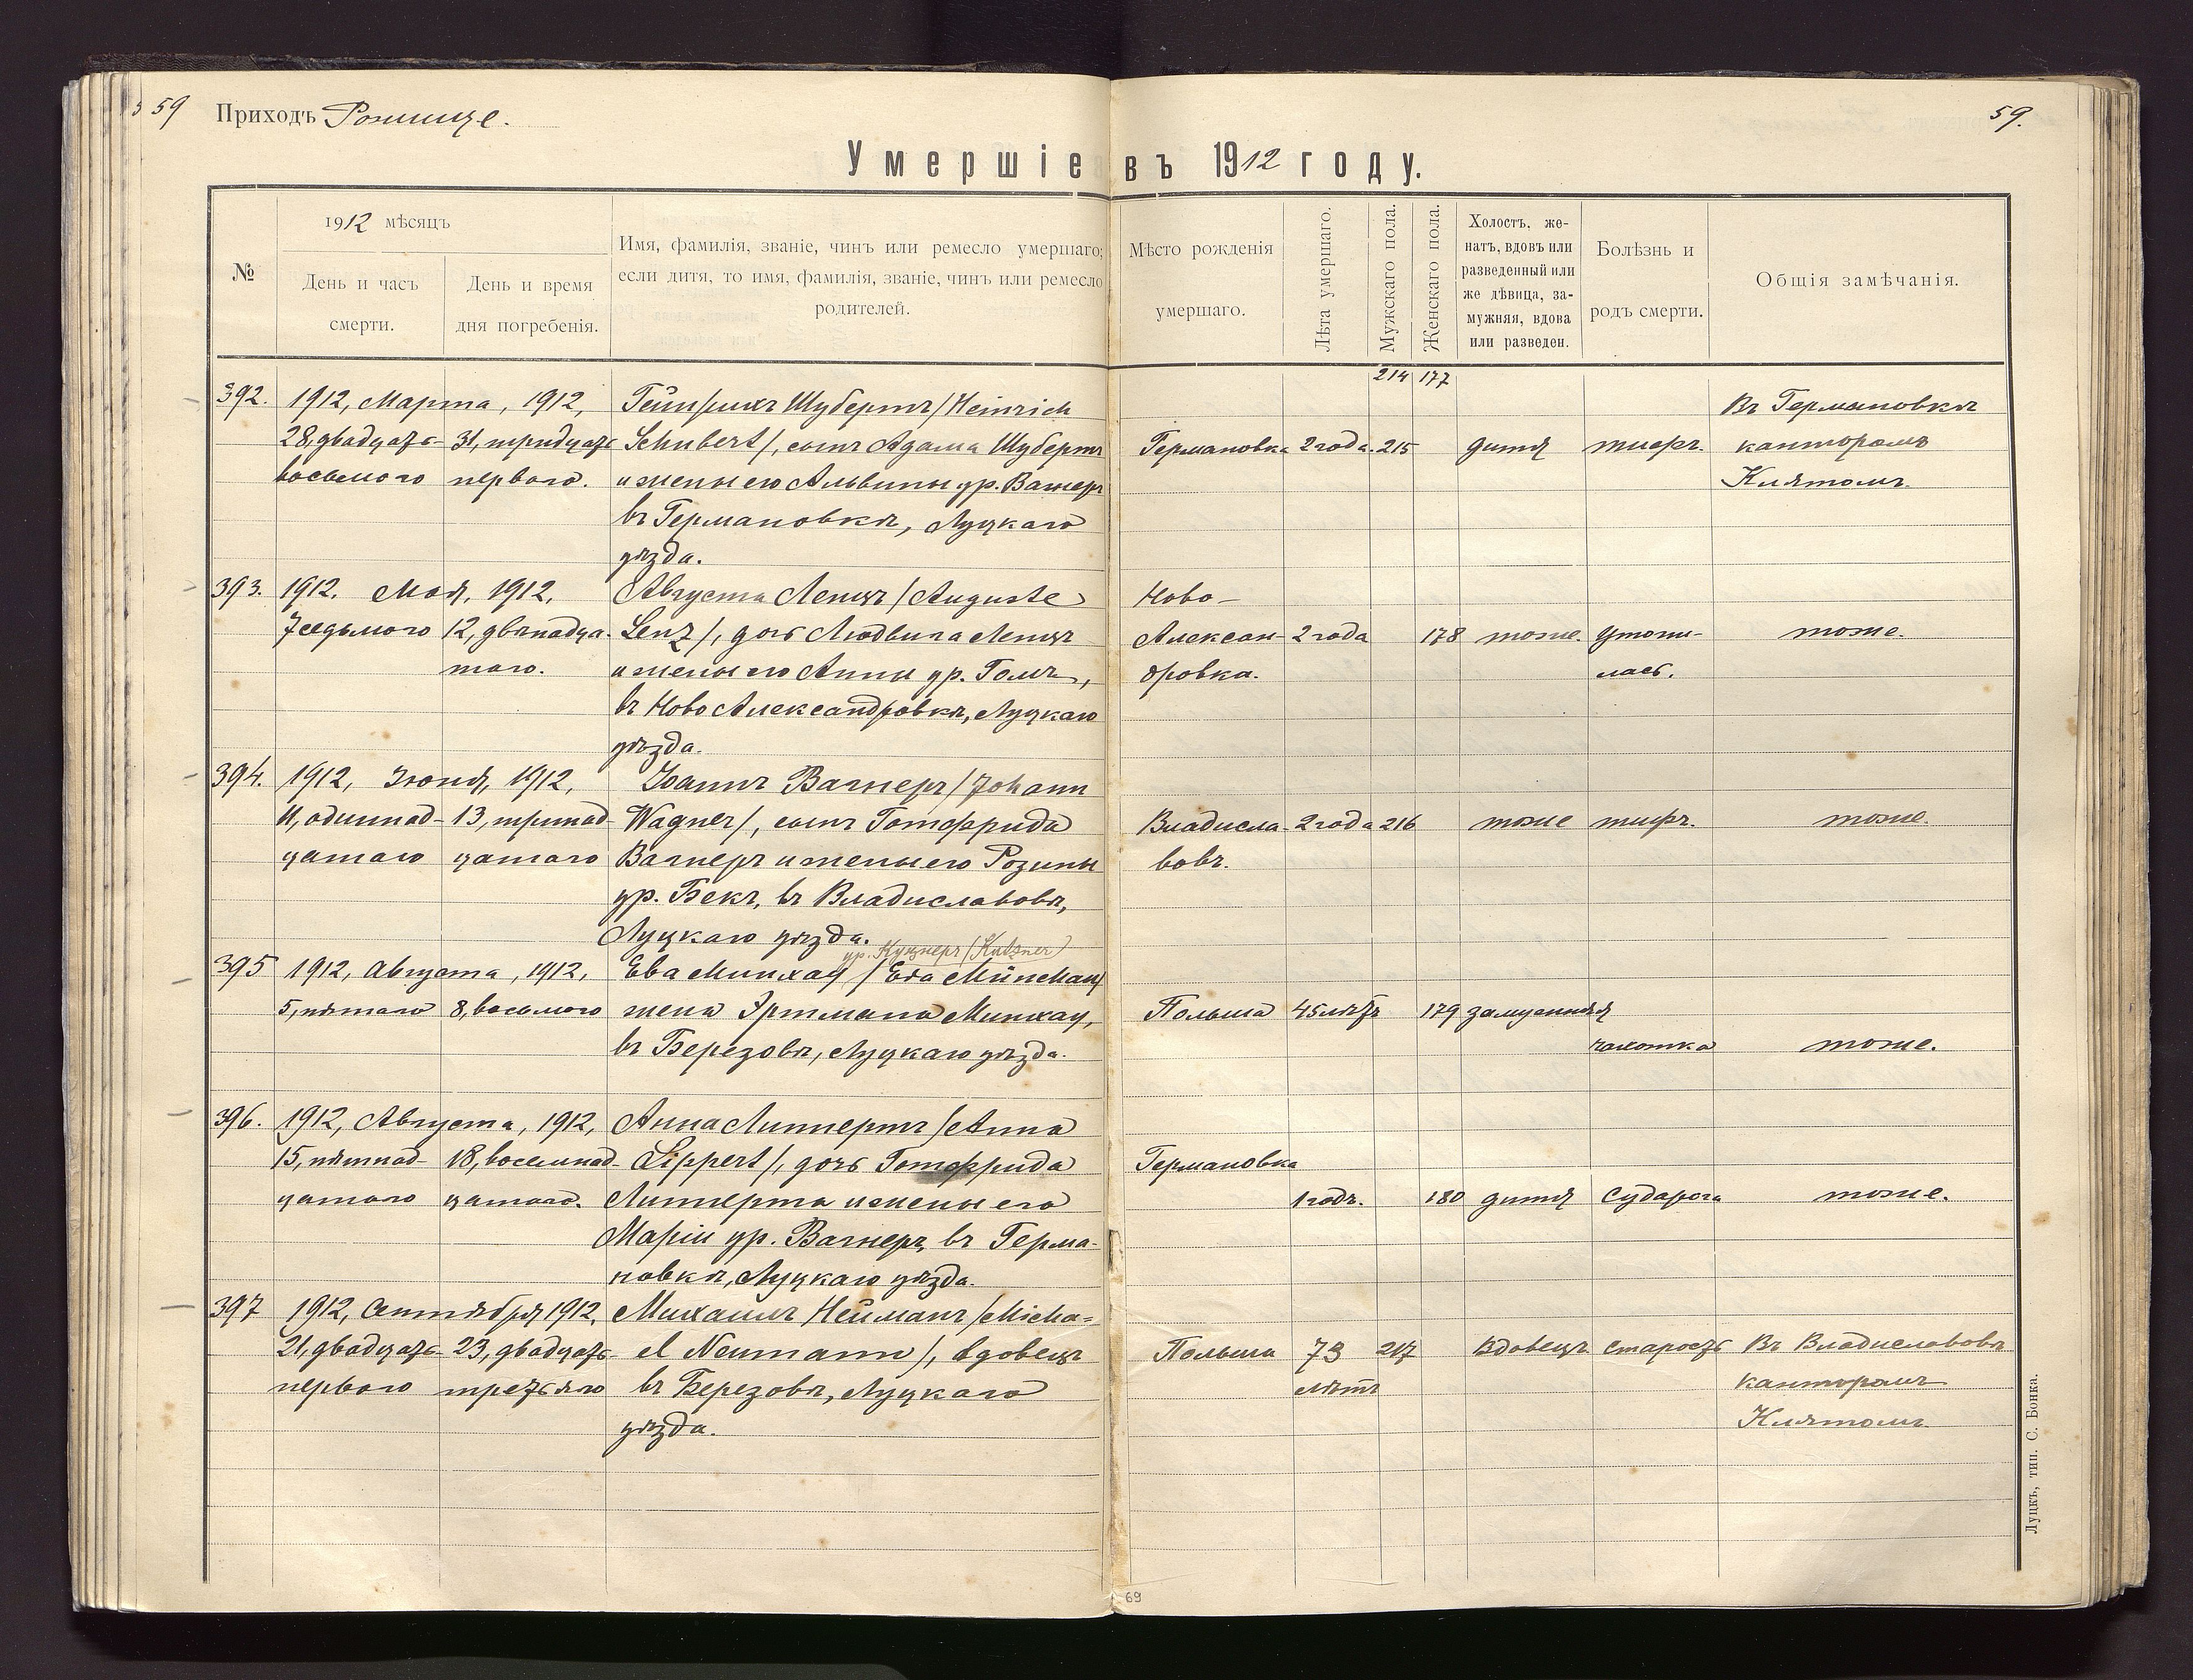 59 Приходъ Рожище.
59.
Умершіе въ 1912 году.
№
1912 мѣсяцъ
День и часъ смерти.
День и время дня погребенія.
Имя, фамилія, званіе, чинъ или ремесло умершаго;
если дитя, то имя, фамилія, званіе, чинъ или ремесло
родителей.
Мѣсто рожденія
умершаго.
Лѣта умершаго.
Мужскаго пола.
Женскаго пола.
Холостъ, же-
натъ, вдовъ или
разведенный или
же дѣвица, за-
мужняя, вдова
или разведен.
Болѣзнь и
родъ смерти.
Общія замѣчанія.
214 177
392. 1912, Марта, 1912, Гейнрихъ Шубертъ /Heinrich Въ Германовкѣ
28, двадцать 31, тридцать Schubert/, сынъ Адама Шубертъ Германовка 2 года. 215 дитя тифъ. канторомъ
восьмого первого. и жены его Альвины ур. Вагнеръ Клятомъ.
въ Германовкѣ, Луцкаго
уѣзда.
393. 1912. Мая, 1912, Августа Ленцъ /Auguste Ново-
7 седьмого 12, двѣнадца- Lenz/, дочь Людвига Ленцъ Алексан- 2 года 178 тоже. утопи- тоже.
таго. и жены его Анны ур. Гольцъ, дровка. лась.
въ Ново Александровкѣ, Луцкаго
уѣзда.
394. 1912, Іюня, 1912, Іоаннъ Вагнеръ /Johann
11, одиннад- 13, тринад- Wagner/, сынъ Готфрида Владисла- 2 года 216 тоже тифъ. тоже.
цатаго цатаго Вагнеръ и жены его Розины вовъ.
ур. Бекъ, въ Владиславовѣ,
Луцкаго уѣзда.
ур. Куцнеръ /Kutzner/
395 1912, Августа, 1912, Ева Минхау /Eva Münchau/
5, пятаго 8, восьмого жена Эртмана Минхау, Польша 45 лѣтъ 179 замужняя
въ Березовѣ, Луцкаго уѣзда. чахотка тоже.
396. 1912, Августа, 1912, Анна Липпертъ /Anna
15, пятнад- 18, восемнад- Lippert/, дочь Готфрида Германовка
цатаго цатаго. Липперта и жены его 1 годъ. 180 дитя Судорога тоже.
Маріи ур. Вагнеръ, въ Герма-
новкѣ, Луцкаго уѣзда.
397 1912, Сентября 1912, Михаилъ Нейманъ /Micha-
21, двадцать 23, двадцать el Neumann/, вдовецъ Польша 73 217 вдовецъ старость Въ Владиславовѣ
первого третьяго въ Березовѣ, Луцкаго лѣтъ канторомъ
уѣзда. Клятомъ.
Луцкъ, тип. С. Бонка.
69